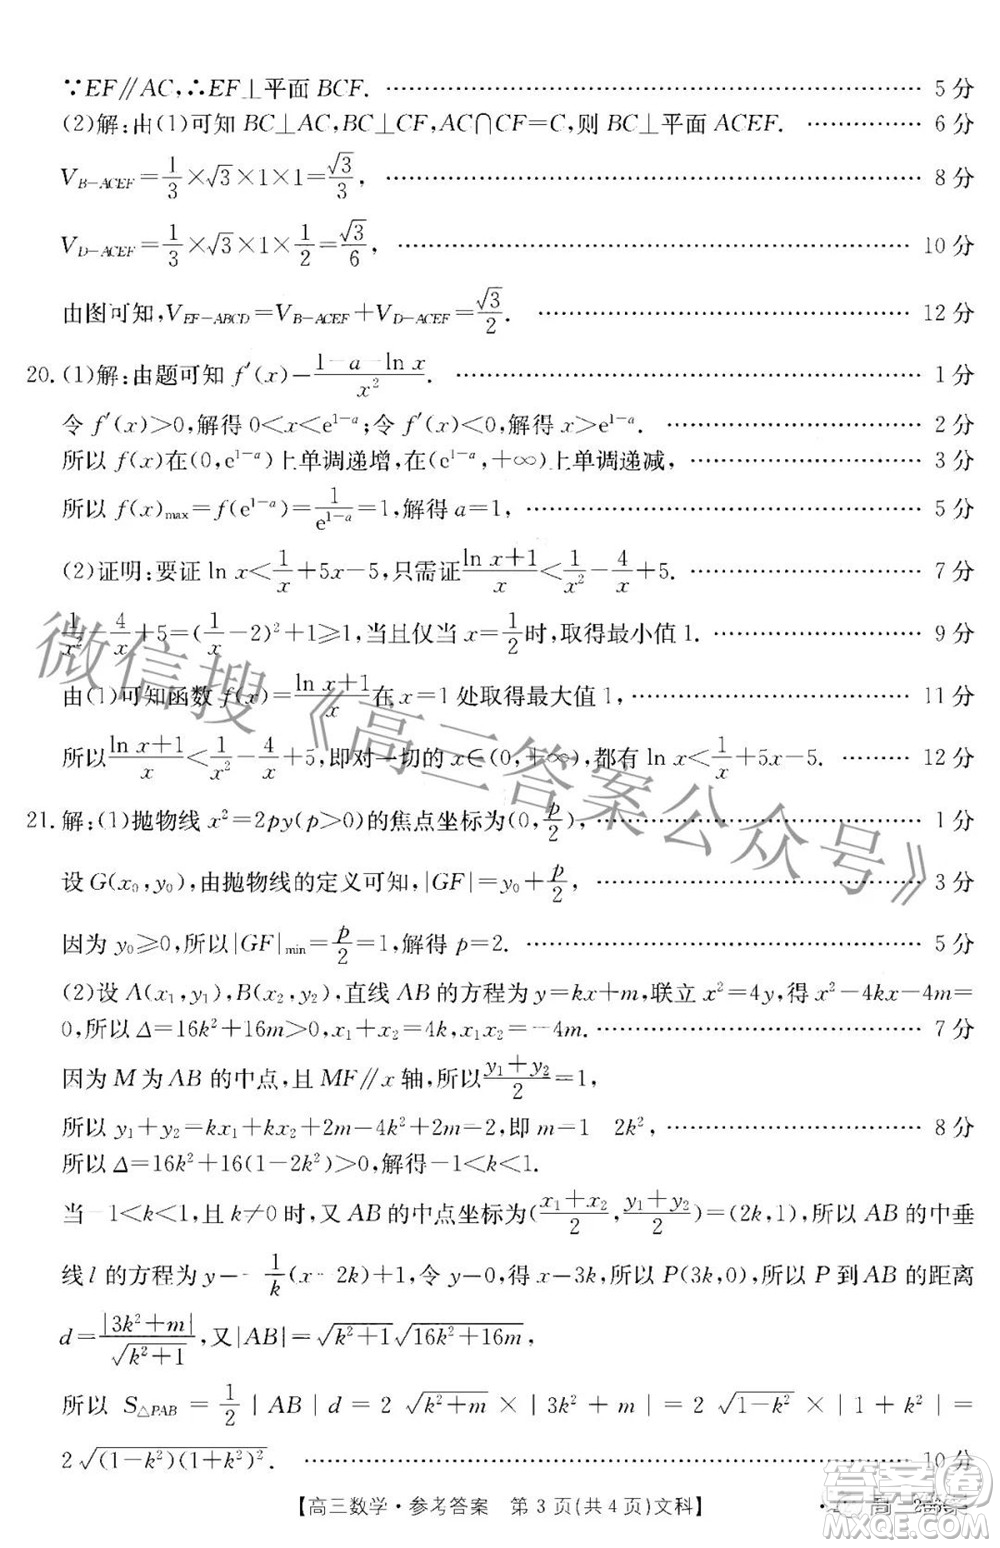 ∵EF∥AC,∴EF⊥平面 BCF. 5 分
(2)解:由(1)可知 BC⊥AC,BC⊥CF,AC∩CF=C,则 BC⊥平面 ACEF. 6 分
V_{B-ACEF}=1/3×√3×1×1=√3/3, 8 分
V_{D-ACEF}=1/3×√3×1×1/2=√3/6, 10 分
由图可知,V_{EF-ABCD}=V_{B-ACEF}+V_{D-ACEF}=√3/2. 12 分
20.(1)解:由题可知 f′(x)=(1-a-ln x)/x². 1 分
令 f′(x)>0,解得 0<x<e^{1-a};令 f′(x)<0,解得 x>e^{1-a}. 2 分
所以 f(x)在(0,e^{1-a})上单调递增,在(e^{1-a},+∞)上单调递减, 3 分
所以 f(x)_{max}=f(e^{1-a})=1/e^{1-a}=1,解得 a=1, 5 分
(2)证明:要证 ln x<1/x+5x-5,只需证(ln x+1)/x<1/x²-4/x+5. 7 分
1/x²-4/x+5=(1/x-2)²+1≥1,当且仅当 x=1/2时,取得最小值 1. 9 分
由(1)可知函数 f(x)=(ln x+1)/x在 x=1 处取得最大值 1, 11 分
所以(ln x+1)/x<1/x²-4/x+5,即对一切的 x∈(0,+∞),都有 ln x<1/x+5x-5. 12 分
21.解:(1)抛物线 x²=2py(p>0)的焦点坐标为(0,p/2), 1 分
设 G(x₀,y₀),由抛物线的定义可知,|GF|=y₀+p/2, 3 分
因为 y₀≥0,所以|GF|_{min}=p/2=1,解得 p=2. 5 分
(2)设 A(x₁,y₁),B(x₂,y₂),直线 AB 的方程为 y=kx+m,联立 x²=4y,得 x²-4kx-4m=
0,所以 Δ=16k²+16m>0,x₁+x₂=4k,x₁x₂=-4m. 7 分
因为 M 为 AB 的中点,且 MF∥x 轴,所以(y₁+y₂)/2=1,
所以 y₁+y₂=kx₁+kx₂+2m=4k²+2m=2,即 m=1 2k², 8 分
所以 Δ=16k²+16(1-2k²)>0,解得-1<k<1.
当-1<k<1,且 k≠0 时,又 AB 的中点坐标为((x₁+x₂)/2,(y₁+y₂)/2)=(2k,1),所以 AB 的中垂
线 l 的方程为 y=-1/k(x-2k)+1,令 y=0,得 x=3k,所以 P(3k,0),所以 P 到AB 的距离
d=|3k²+m|/√(k²+1),又|AB|=√(k²+1)√(16k²+16m),
所以 S_{△PAB} = 1/2 | AB | d = 2 √(k²+m) × | 3k²+m | = 2 √(1-k²) × | 1+k² | =
2√((1-k²)(1+k²)²). 10 分
【高三数学·参考答案 第 3 页(共 4 页)文科】
微信搜《高三答案公众号》
答案圈
MXQE.COM